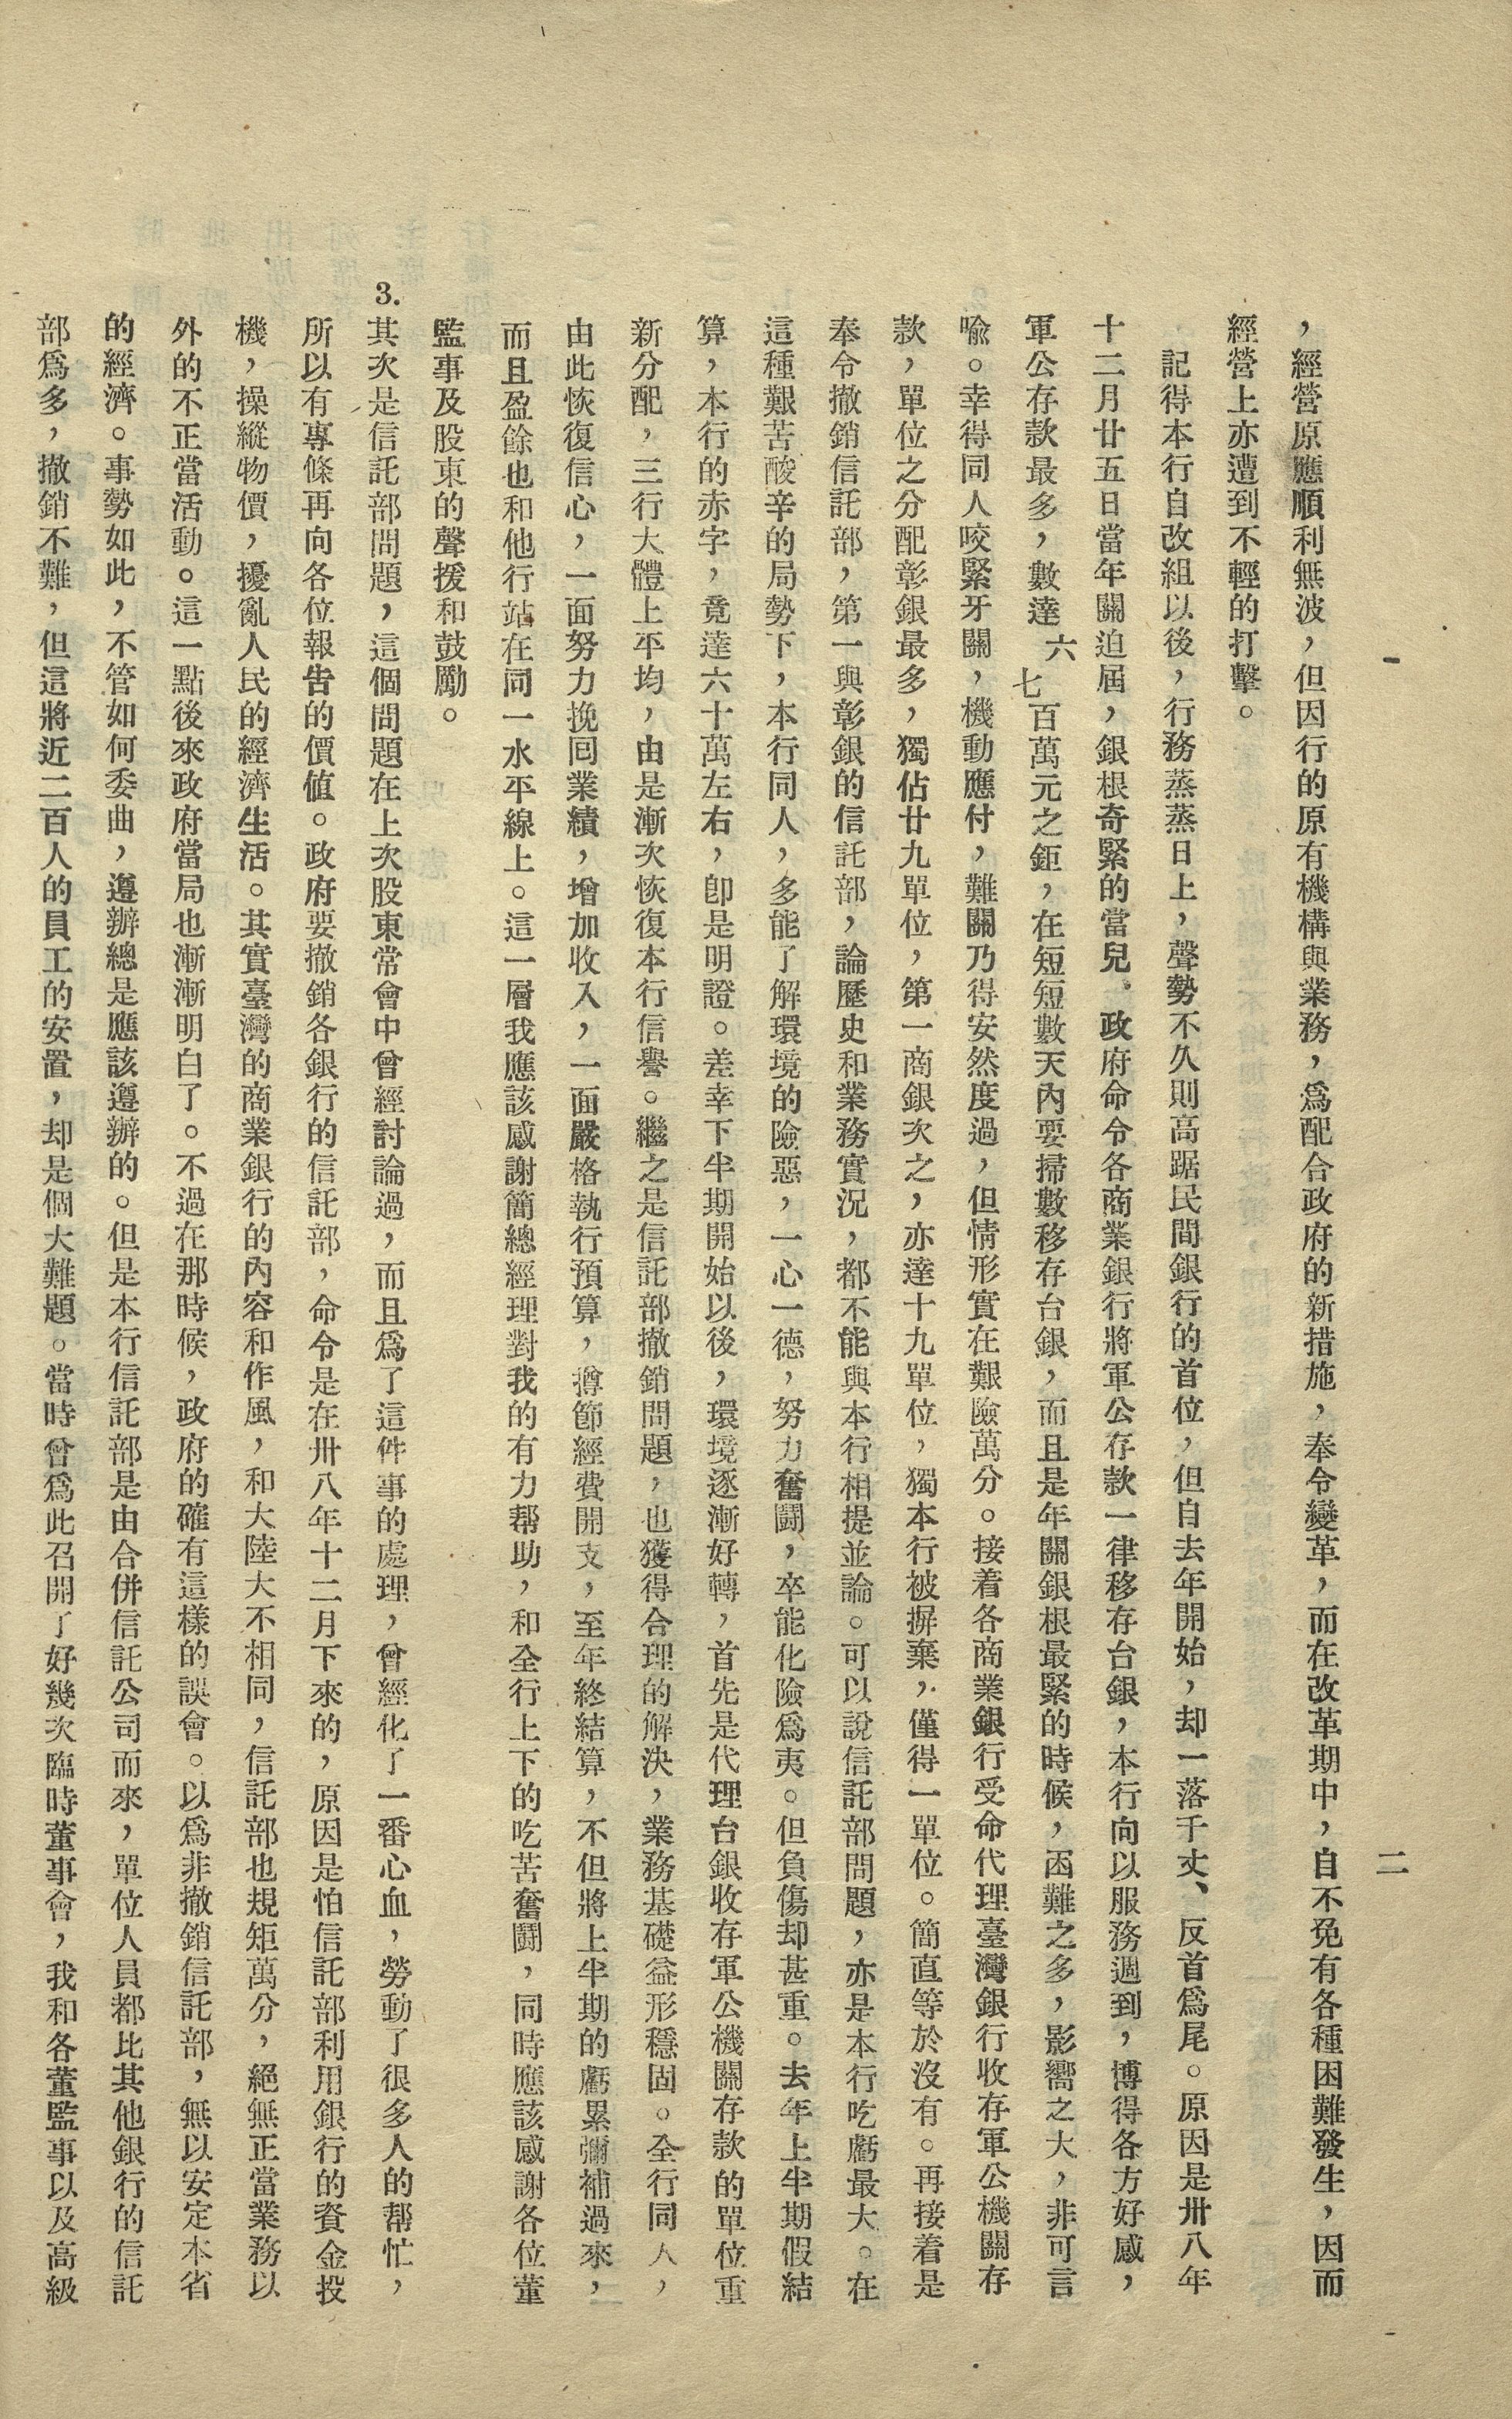 二
，經營原應順利無波，但因行的原有機構與業務，爲配合政府的新措施，奉令變革，而在改革期中，自不免有各種困難發生，因而
經營上亦遭到不輕的打擊。
記得本行自改組以後，行務蒸蒸日上，聲勢不久則高踞民間銀行的首位，但自去年開始，却一落千丈、反首爲尾。原因是卅八年
十二月廿五日當年關迫屆，銀根奇緊的當兒，政府命令各商業銀行將軍公存款一律移存台銀，本行向以服務週到，博得各方好感，
軍公存款最多，數達六七百萬元之鉅，在短短數天內要掃數移存台銀，而且是年關銀根最緊的時候，困難之多，影嚮之大，非可言
喻。幸得同人咬緊牙關，機動應付，難關乃得安然度過，但情形實在艱險萬分。接着各商業銀行受命代理臺灣銀行收存軍公機關存
款，單位之分配彰銀最多，獨佔廿九單位，第一商銀次之，亦達十九單位，獨本行被摒棄，僅得一單位。簡直等於沒有。再接着是
奉令撤銷信託部，第一與彰銀的信託部，論歷史和業務實況，都不能與本行相提並論。可以說信託部問題，亦是本行吃虧最大。在
這種艱苦酸辛的局勢下，本行同人，多能了解環境的險惡，一心一德，努力奮鬪，卒能化險爲夷。但負傷却甚重。去年上半期假結
算，本行的赤字，竟達六十萬左右，卽是明證。差幸下半期開始以後，環境逐漸好轉，首先是代理台銀收存軍公機關存款的單位重
新分配，三行大體上平均，由是漸次恢復本行信譽。繼之是信託部撤銷問題，也獲得合理的解決，業務基礎益形穩固。全行同人，
由此恢復信心，一面努力挽囘業績，增加收入，一面嚴格執行預算，撙節經費開支，至年終結算，不但將上半期的虧累彌補過來，
而且盈餘也和他行站在同一水平線上。這一層我應該感謝簡總經理對我的有力帮助，和全行上下的吃苦奮鬪，同時應該感謝各位董
監事及股東的聲援和鼓勵。
3.其次是信託部問題，這個問題在上次股東常會中曾經討論過，而且爲了這件事的處理，曾經化了一番心血，勞動了很多人的帮忙，
所以有專條再向各位報告的價值。政府要撤銷各銀行的信託部，命令是在卅八年十二月下來的，原因是怕信託部利用銀行的資金投
機，操縱物價，擾亂人民的經濟生活。其實臺灣的商業銀行的內容和作風，和大陸大不相同，信託部也規矩萬分，絕無正當業務以
外的不正當活動。這一點後來政府當局也漸漸明白了。不過在那時候，政府的確有這樣的誤會。以爲非撤銷信託部，無以安定本省
的經濟。事勢如此，不管如何委曲，遵辦總是應該遵辦的。但是本行信託部是由合併信託公司而來，單位人員都比其他銀行的信託
部爲多，撤銷不難，但這將近二百人的員工的安置，却是個大難題。當時曾爲此召開了好幾次臨時董事會，我和各董監事以及高級